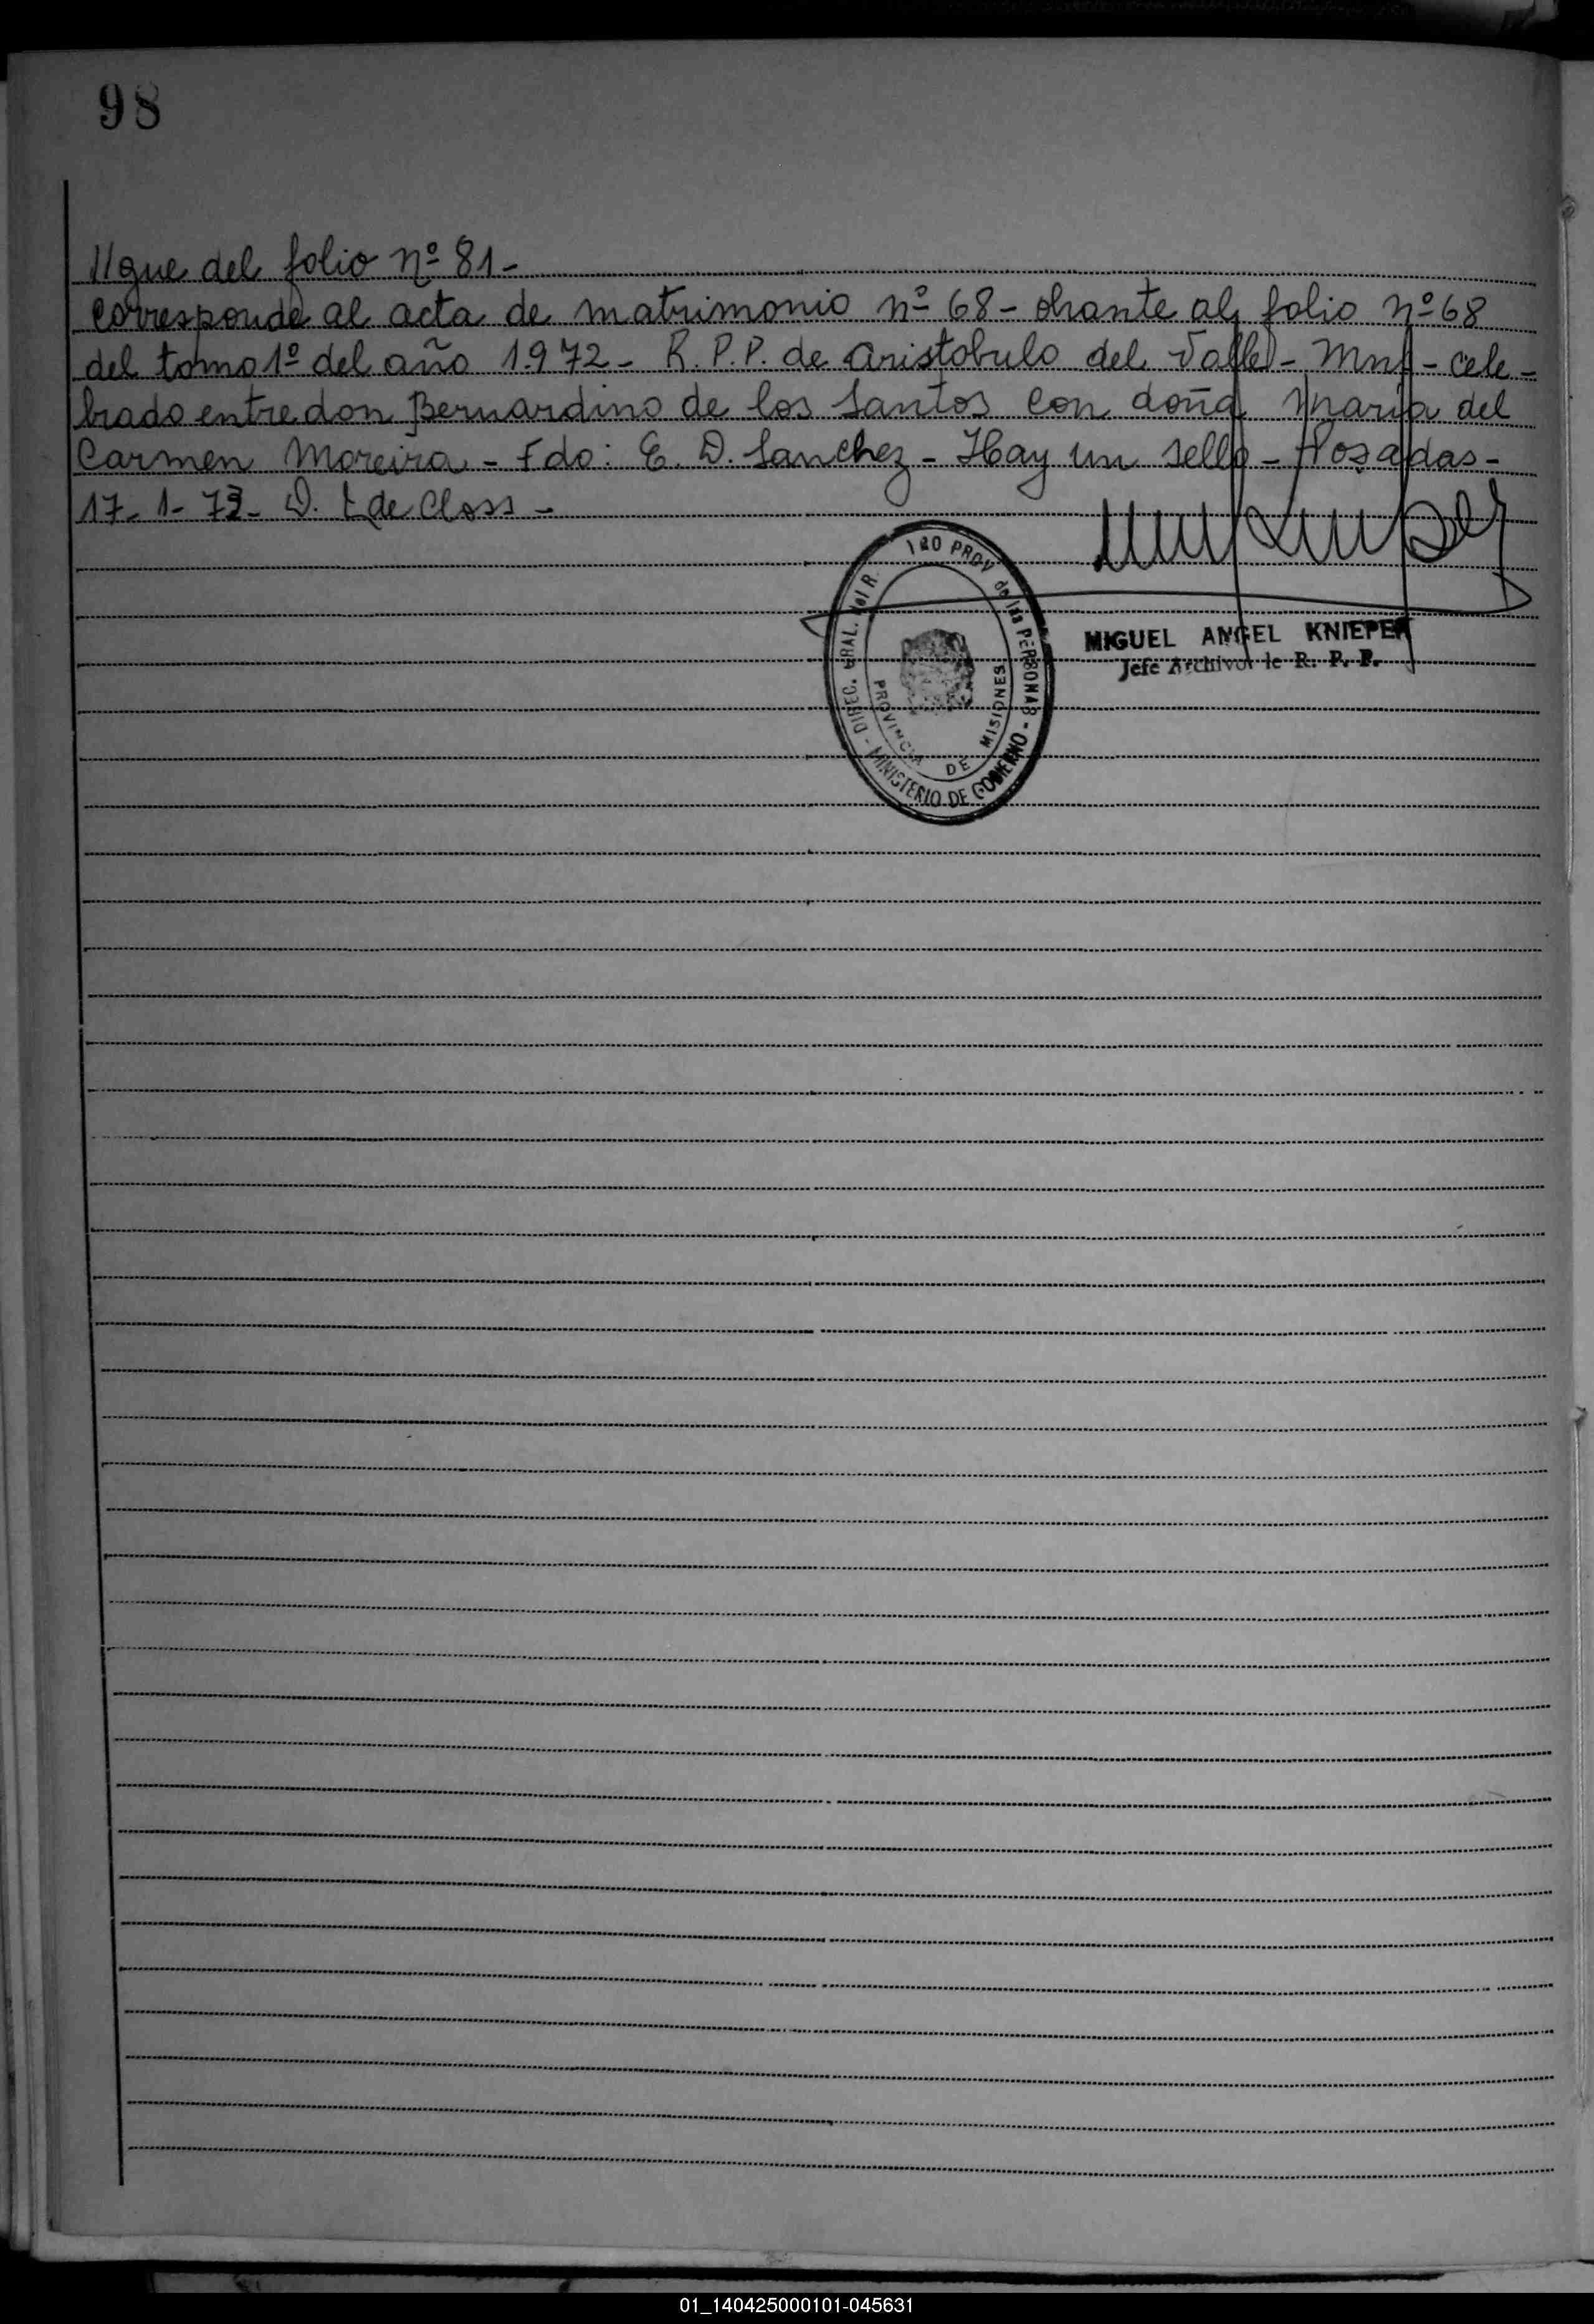 98
//gue del folio nº 81-
Corresponde al acta de matrimonio nº 68 - obrante al folio nº 68
del tomo 1º del año 1.972 - R. P. P. de Aristobulo del Valle - Mns - cele-
brado entre don Bernardino de los Santos con doña Maria del
Carmen Moreira - Fdo: E. D. Sanchez - Hay un sello - Posadas -
17- 1- 73- D. L de Closs -
DIREC. GRAL. del R. PROV de las PERSONAS - MINISTERIO DE GOBIERNO -
PROVINCIA DE MISIONES
MIGUEL ANGEL KNIEPER
Jefe Archivo de R. P. P.
01_140425000101-045631